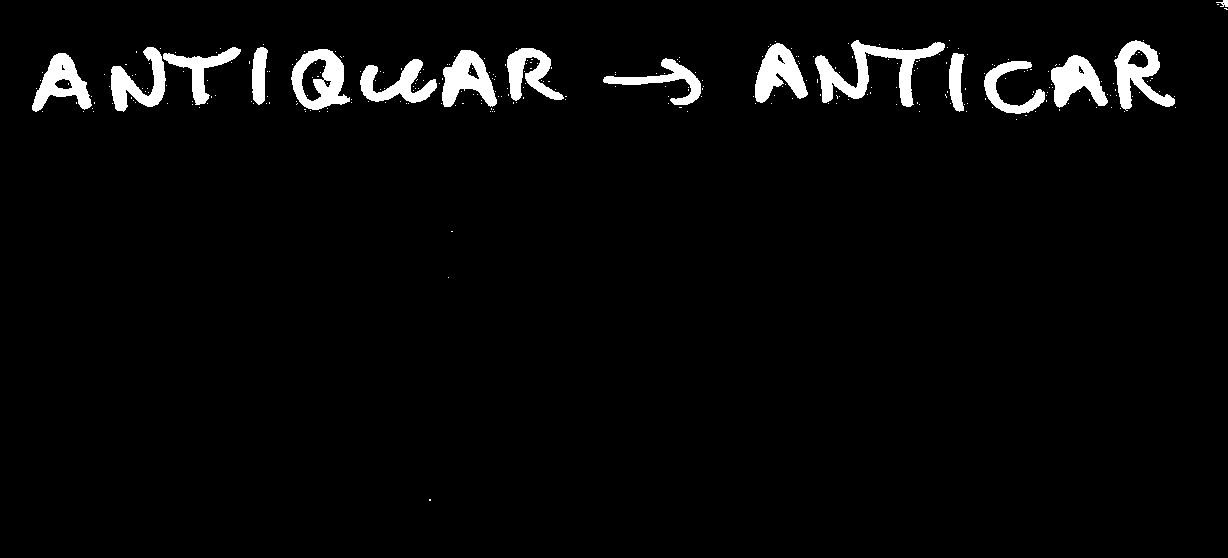 ANTIQUAR → ANTICAR